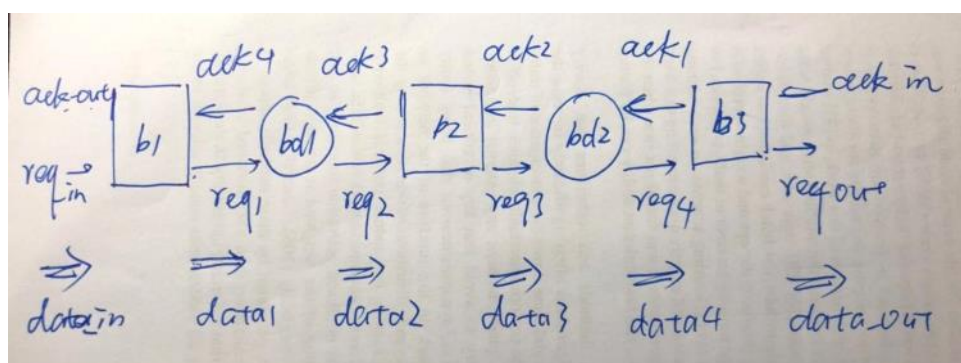 ack4 ack3 ack2 ack1
ack-out b1 bd1 b2 bd2 b3 ack in
req in req1 req2 req3 req4 req out
data in data1 data2 data3 data4 data_out